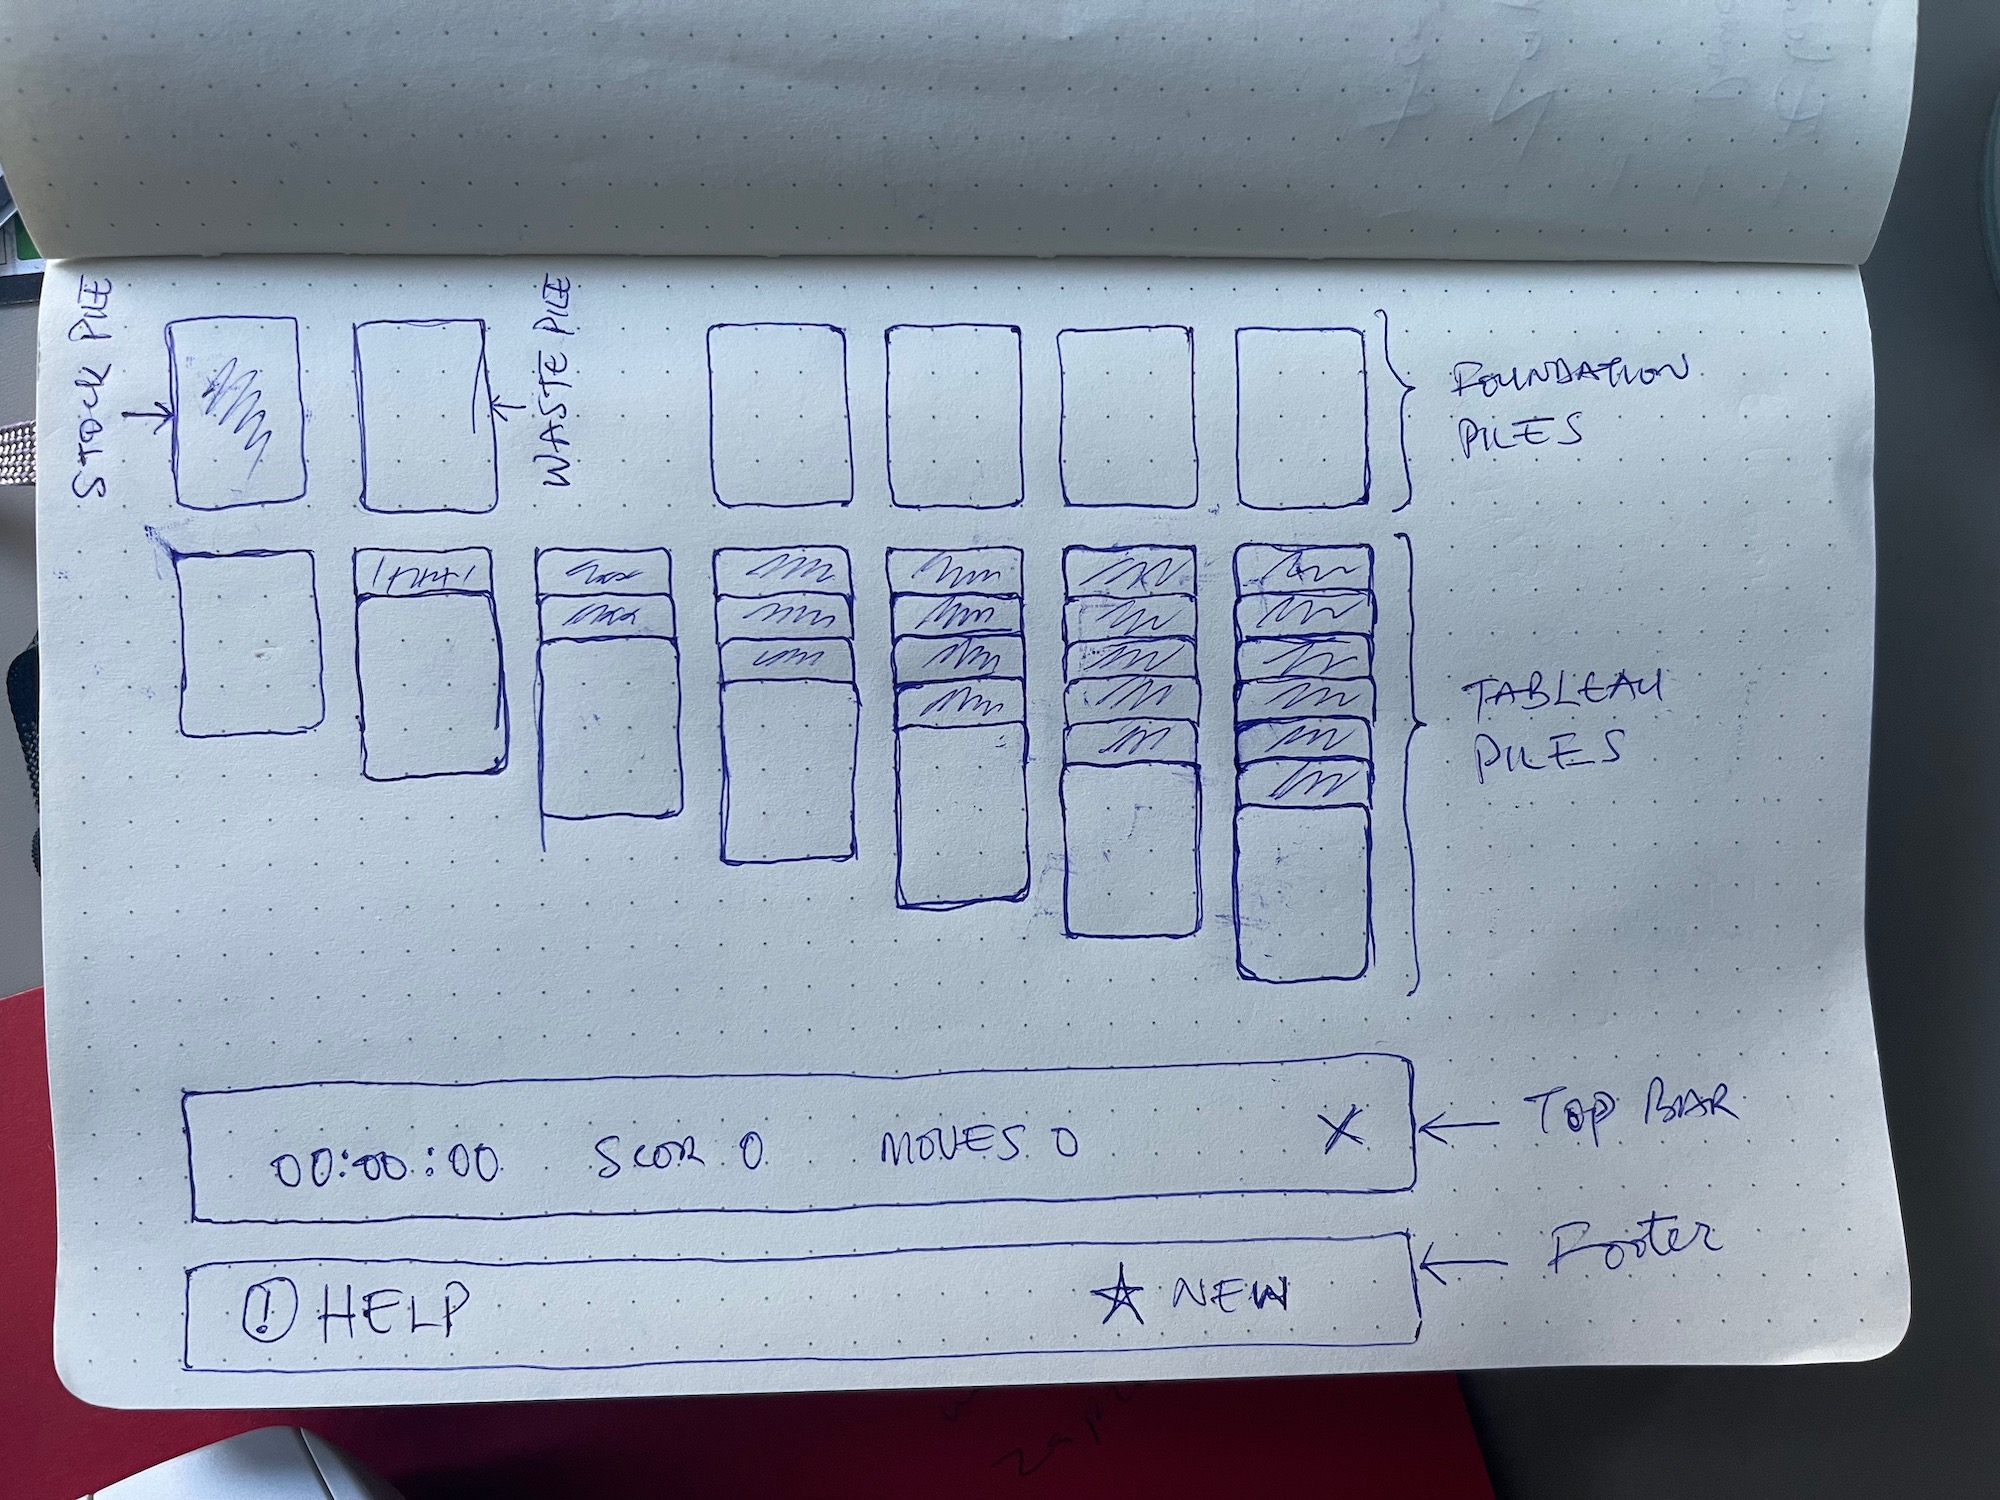 STOCK PILE
WASTE PILE
FOUNDATION
PILES
TABLEAU
PILES
00:00:00 SCOR 0 MOVES 0 X
TOP BAR
! HELP ☆ NEW
Footer